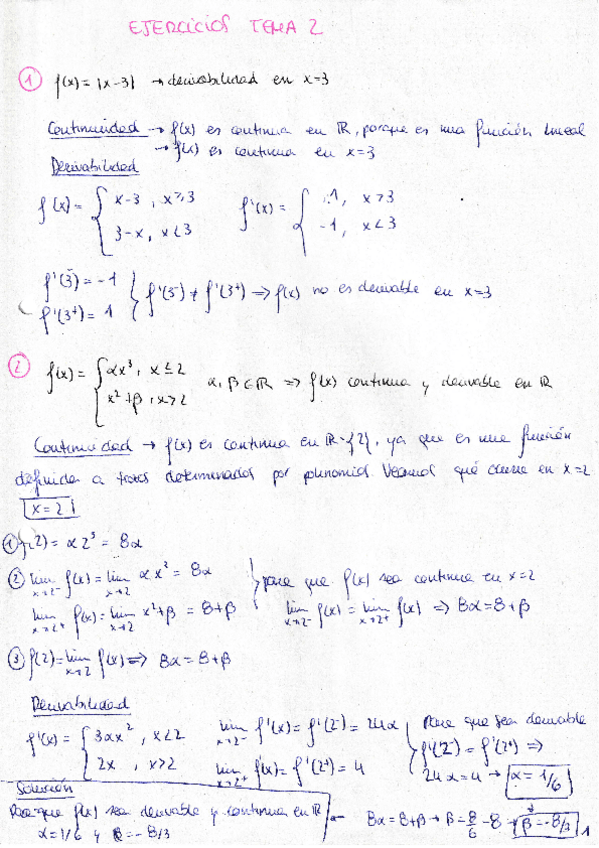 EJERCICIOS TEMA 2
① f(x) = |x-3| → derivabilidad en x=3
Continuidad → f(x) es continua en ℝ, porque es una función lineal
→ f(x) es continua en x=3
Derivabilidad
f(x) = { x-3, x≥3
3-x, x<3
f'(x) = { 1, x>3
-1, x<3
f'(3⁻) = -1
f'(3⁺) = 1
} f'(3⁻) ≠ f'(3⁺) ⇒ f(x) no es derivable en x=3
② f(x) = { αx³, x≤2
x²+β, x>2
α, β ∈ ℝ ⇒ f(x) continua y derivable en ℝ
Continuidad → f(x) es continua en ℝ-{2}, ya que es una función
definida a trozos determinados por polinomios. Veamos qué ocurre en x=2
x=2
① f(2) = α2³ = 8α
② lim x→2⁻ f(x) = lim x→2 αx³ = 8α
lim x→2⁺ f(x) = lim x→2 x²+β = 8+β
} para que f(x) sea continua en x=2
lim x→2⁻ f(x) = lim x→2⁺ f(x) ⇒ 8α=8+β
③ f(2) = lim x→2 f(x) ⇒ 8α = 8+β
Derivabilidad
f'(x) = { 3αx², x<2
2x, x>2
lim x→2⁻ f'(x) = f'(2⁻) = 24α
lim x→2⁺ f'(x) = f'(2⁺) = 4
} Para que sea derivable
f'(2⁻) = f'(2⁺) ⇒
24α = 4 → α = 1/6
Solución
Para que f(x) sea derivable y continua en ℝ
α=1/6 y β=-8/3
8α = 8+β → β = 8/6 - 8 → β = -8/3
1